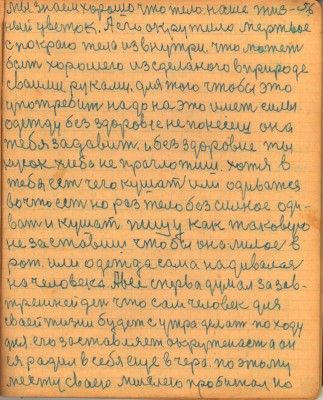 мы знаем хорошо что тело наше жив-
ной цветок. А если окружило мертвое
с покраю тело из внутри, что может
быт хорошего из сделаного в природе
своими руками, для того чтобы это
употребит надо на это имет силы.
одежду без здоровие не понесеш она
тебя задавит. и без здоровие ты
кусок хлеба не проглотиш. хотя в
тебя ест чего кушат или одеватся
вочто ест но раз тело без силное оде-
ват и кушат пищу как таковую
не заставиш что бы она милое в
рот или одежда сама надивалая
на человека. А все сперва думал за зав-
трешней ден что сам человек для
своей жизни будет с утра делат по ходу
дня. его заставляет окружена ста он
ся радил в себя еще в чера. поэтому
своего мислею пробитал но